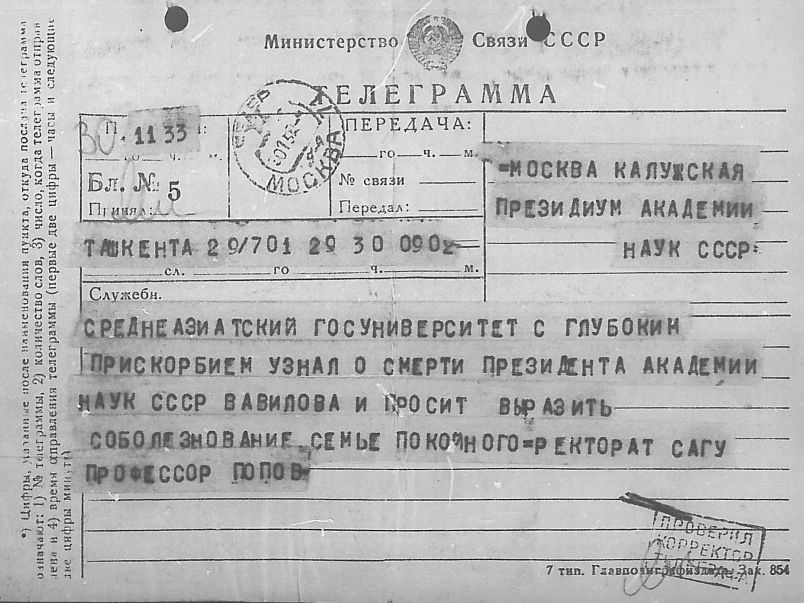 Министерство Связи СССР
ТЕЛЕГРАММА
11 33
Бл. № 5
Принял:
МОСКВА
ПЕРЕДАЧА:
го ч. м.
№ связи
Передал:
=МОСКВА КАЛУЖСКАЯ
ПРЕЗИДИУМ АКАДЕМИИ
НАУК СССР=
ТАШКЕНТА 29/701 29 30 0902=
сл. го ч. м.
Служебн.
СРЕДНЕАЗИАТСКИЙ ГОСУНИВЕРСИТЕТ С ГЛУБОКИМ
ПРИСКОРБИЕМ УЗНАЛ О СМЕРТИ ПРЕЗИДЕНТА АКАДЕМИИ
НАУК СССР ВАВИЛОВА И ПРОСИТ ВЫРАЗИТЬ
СОБОЛЕЗНОВАНИЕ СЕМЬЕ ПОКОЙНОГО=РЕКТОРАТ САГУ
ПРОФЕССОР ПОПОВ
ПРОВЕРИЛ
КОРРЕКТОР
7 тип. Главполиграфиздата. Зак. 854
*) Цифры, указанные после наименования пункта, откуда послана телеграмма
означают: 1) № телеграммы, 2) количество слов, 3) число, когда телеграмма отправ
лена и 4) время отправления телеграммы (первые две цифры — часы и следующие
две цифры минуты)